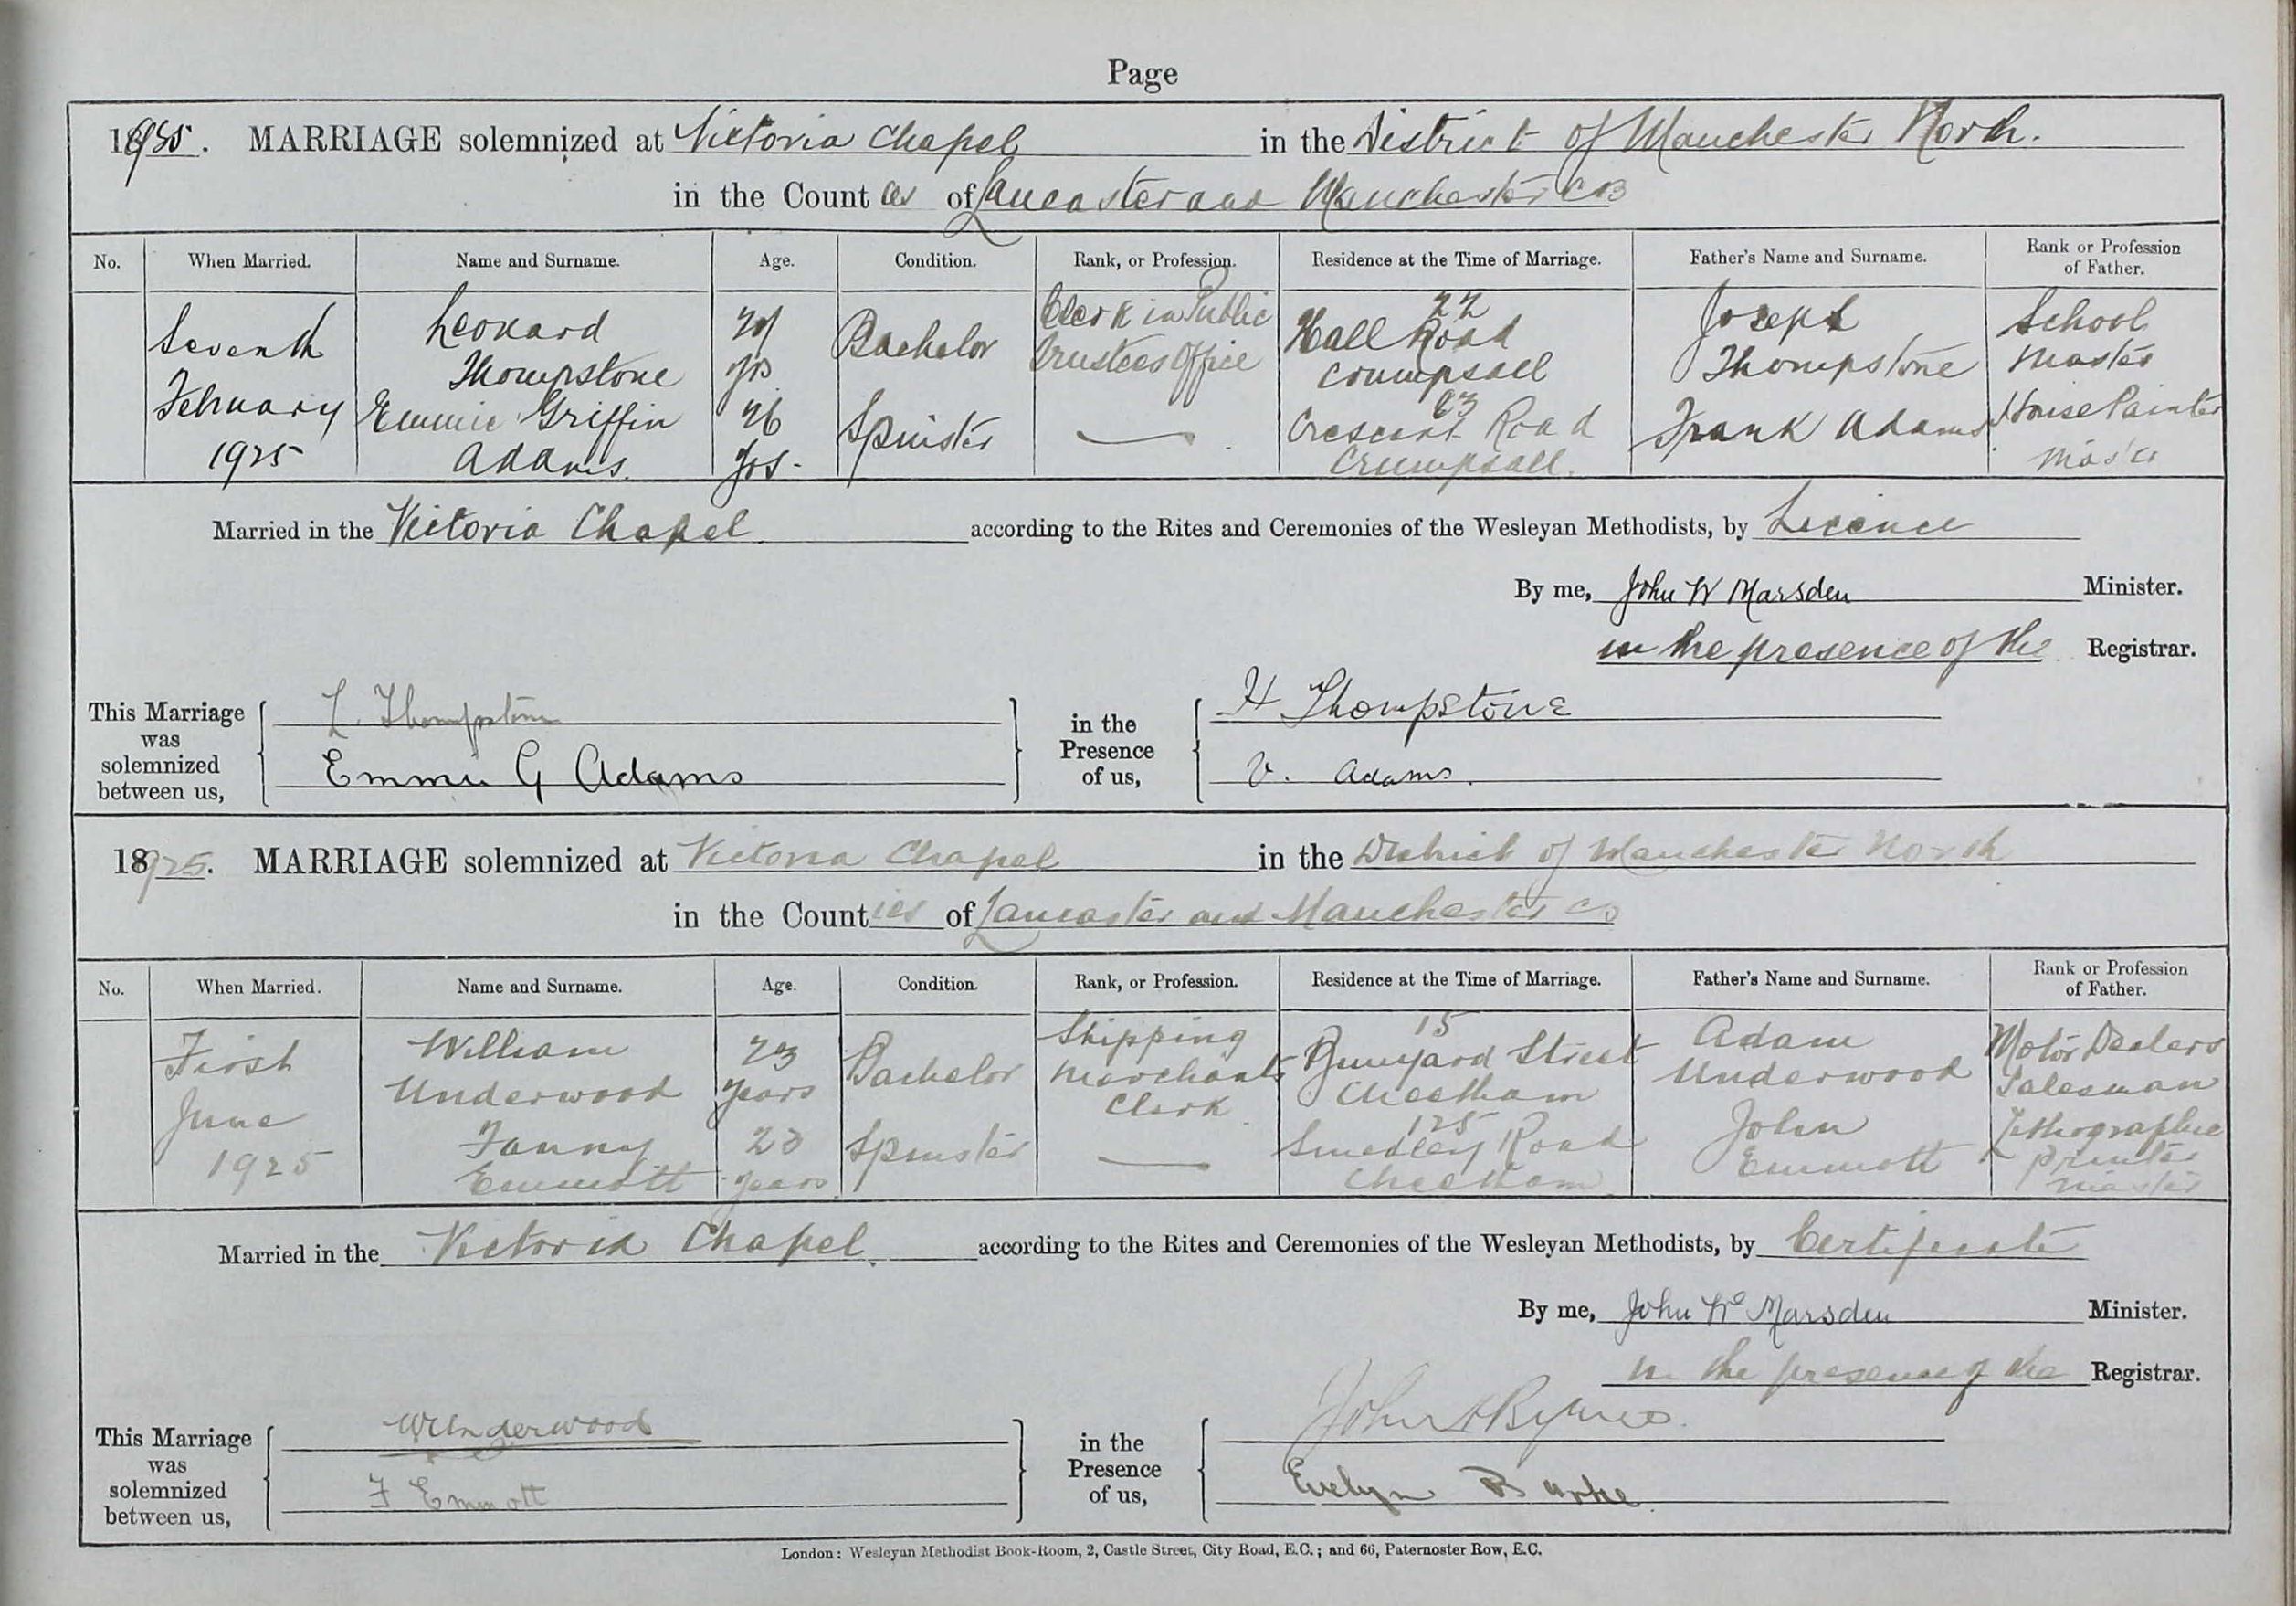 Page
1925. MARRIAGE solemnized at Victoria Chapel in the District of Manchester North.
in the Counties of Lancaster and Manchester CB
No. When Married. Name and Surname. Age. Condition. Rank, or Profession. Residence at the Time of Marriage. Father's Name and Surname. Rank or Profession of Father.
Seventh February 1925
Leonard Thompstone yrs Bachelor Clerk in Public Trustees Office 22 Hall Road Crumpsall Joseph Thompstone School Master
Emmie Griffin Adams. 26 yrs. Spinster — 63 Crescent Road Crumpsall. Frank Adams House Painter Master
Married in the Victoria Chapel. according to the Rites and Ceremonies of the Wesleyan Methodists, by Licence
By me, John W Marsden Minister.
in the presence of the Registrar.
This Marriage was solemnized between us, L. Thompstone Emmie G Adams in the Presence of us, H Thompstone V. Adams.
1925. MARRIAGE solemnized at Victoria Chapel in the District of Manchester North
in the Counties of Lancaster and Manchester CB
No. When Married. Name and Surname. Age. Condition. Rank, or Profession. Residence at the Time of Marriage. Father's Name and Surname. Rank or Profession of Father.
First June 1925
William Underwood 23 years Bachelor Shipping Merchants Clerk 15 Street Cheetham Adam Underwood Motor Dealers Salesman
Fanny Emmott 23 years Spinster — 125 Smedley Road Cheetham John Emmott Lithographic Printer Master
Married in the Victoria Chapel. according to the Rites and Ceremonies of the Wesleyan Methodists, by Certificate
By me, John Wm Marsden Minister.
in the presence of the Registrar.
This Marriage was solemnized between us, W Underwood F Emmott in the Presence of us, John Evelyn
London: Wesleyan Methodist Book-Room, 2, Castle Street, City Road, E.C.; and 66, Paternoster Row, E.C.